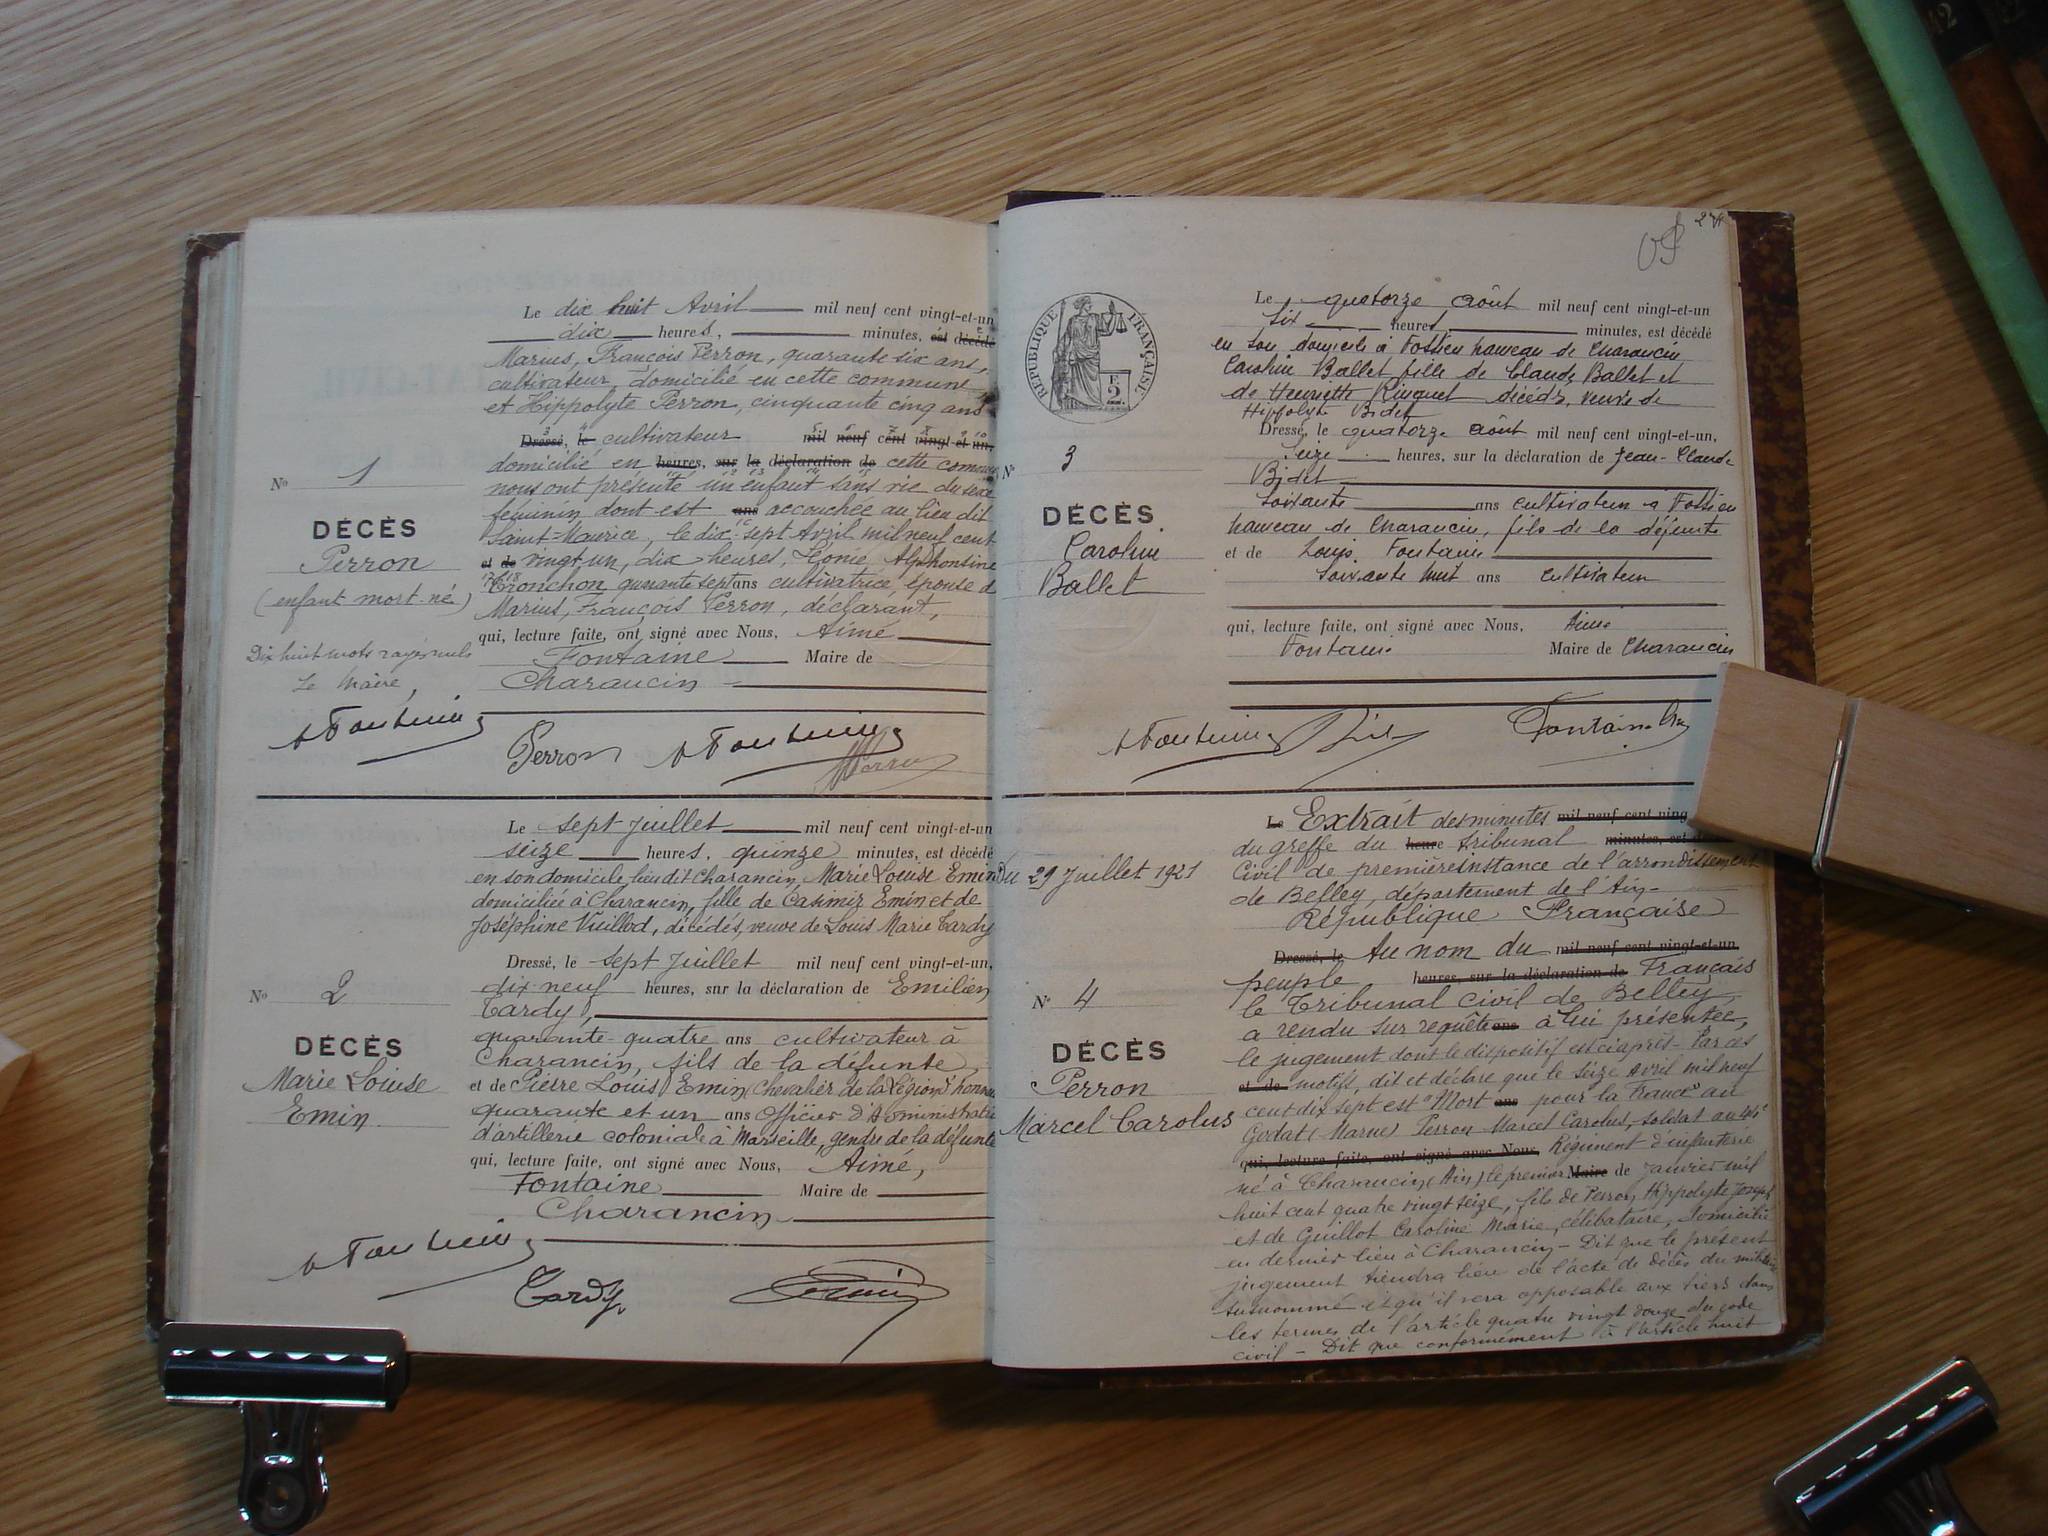 Le dix huit Avril mil neuf cent vingt-et-un
dix heures, minutes, est décédé
Marius, François Perron, quarante six ans,
cultivateur, domicilié en cette commune
et Hippolyte Perron, cinquante cinq ans
Dressé, le cultivateur mil neuf cent vingt et un,
domicilié en heures, sur la déclaration de cette commune
nous ont présenté un enfant sans vie du sexe
féminin dont est ans accouchée au lieu dit
Saint-Maurice, le dix-sept Avril mil neuf cent
et de vingt un, dix heures, Léonie, Alphonsine
Tronchon quarante sept ans cultivatrice, épouse d
Marius, François Perron, déclarant,
qui, lecture faite, ont signé avec Nous, Aimé
Fontaine Maire de
Charancin
No 1
DÉCÈS
Perron
(enfant mort-né)
Dix huit mots rayés nuls
Le Maire,
A Fontaine
Perron A Fontaine
Perron
Le sept Juillet mil neuf cent vingt-et-un
seize heures, quinze minutes, est décédé
en son domicile, lieu dit Charancin, Marie Louise Emin
domiciliée à Charancin, fille de Casimir Emin et de
Joséphine Vuillod, décédés, veuve de Louis Marie Tardy
Dressé, le sept Juillet mil neuf cent vingt-et-un,
dix-neuf heures, sur la déclaration de Emilien
Tardy,
quarante-quatre ans cultivateur à
Charancin, fils de la défunte,
et de Pierre Louis Emin (Chevalier de la Légion d'honneur
quarante et un ans Officier d'Administration
d'artillerie coloniale à Marseille, gendre de la défunte
qui, lecture faite, ont signé avec Nous, Aimé,
Fontaine Maire de
Charancin
No 2
DÉCÈS
Marie Louise
Emin
A Fontaine
Tardy Emin
274
RÉPUBLIQUE FRANÇAISE
2
Le quatorze août mil neuf cent vingt-et-un
Six heures, minutes, est décédé
en son domicile à Fossieu hameau de Charancin
Caroline Ballet fille de Claude Ballet et
de Henriette décédés, veuve de
Hippolyte Bidet
Dressé, le quatorze août mil neuf cent vingt-et-un,
Seize heures, sur la déclaration de Jean-Claude
Bidet
Soixante ans cultivateur à Fossieu
hameau de Charancin, fils de la défunte
et de Louis Fontaine
Soixante huit ans cultivateur
qui, lecture faite, ont signé avec Nous, Aimé
Fontaine Maire de Charancin
No 3
DÉCÈS
Caroline
Ballet
A Fontaine Bidet Fontaine
Du 29 Juillet 1921
Le Extrait des minutes mil neuf cent ving
du greffe du heure tribunal minutes, est dé
Civil de première instance de l'arrondissement
de Belley, département de l'Ain-
République Française
Dressé, le Au nom du mil neuf cent vingt-et-un
peuple heures, sur la déclaration de Français
le Tribunal civil de Belley,
a rendu sur requête ans à lui présentée,
le jugement dont le dispositif est ci après - Par ces
et de motifs, dit et déclare que le seize Avril mil neuf
cent dix sept est "Mort ans pour la France" au
Godat (Marne) Perron Marcel Carolus, soldat au
qui, lecture faite, ont signé avec Nous, Régiment d'infanterie
né à Charancin (Ain) le premier Maire de Janvier mil
huit cent quatre vingt seize, fils de Perron Hippolyte Joseph
et de Guillot Caroline Marie, célibataire, domicilié
en dernier lieu à Charancin - Dit que le présent
jugement tiendra lieu de l'acte de décès du militaire
susnommé et qu'il sera opposable aux tiers dans
les termes de l'article quatre vingt douze du code
civil - Dit que conformément à l'article huit
No 4
DÉCÈS
Perron
Marcel Carolus